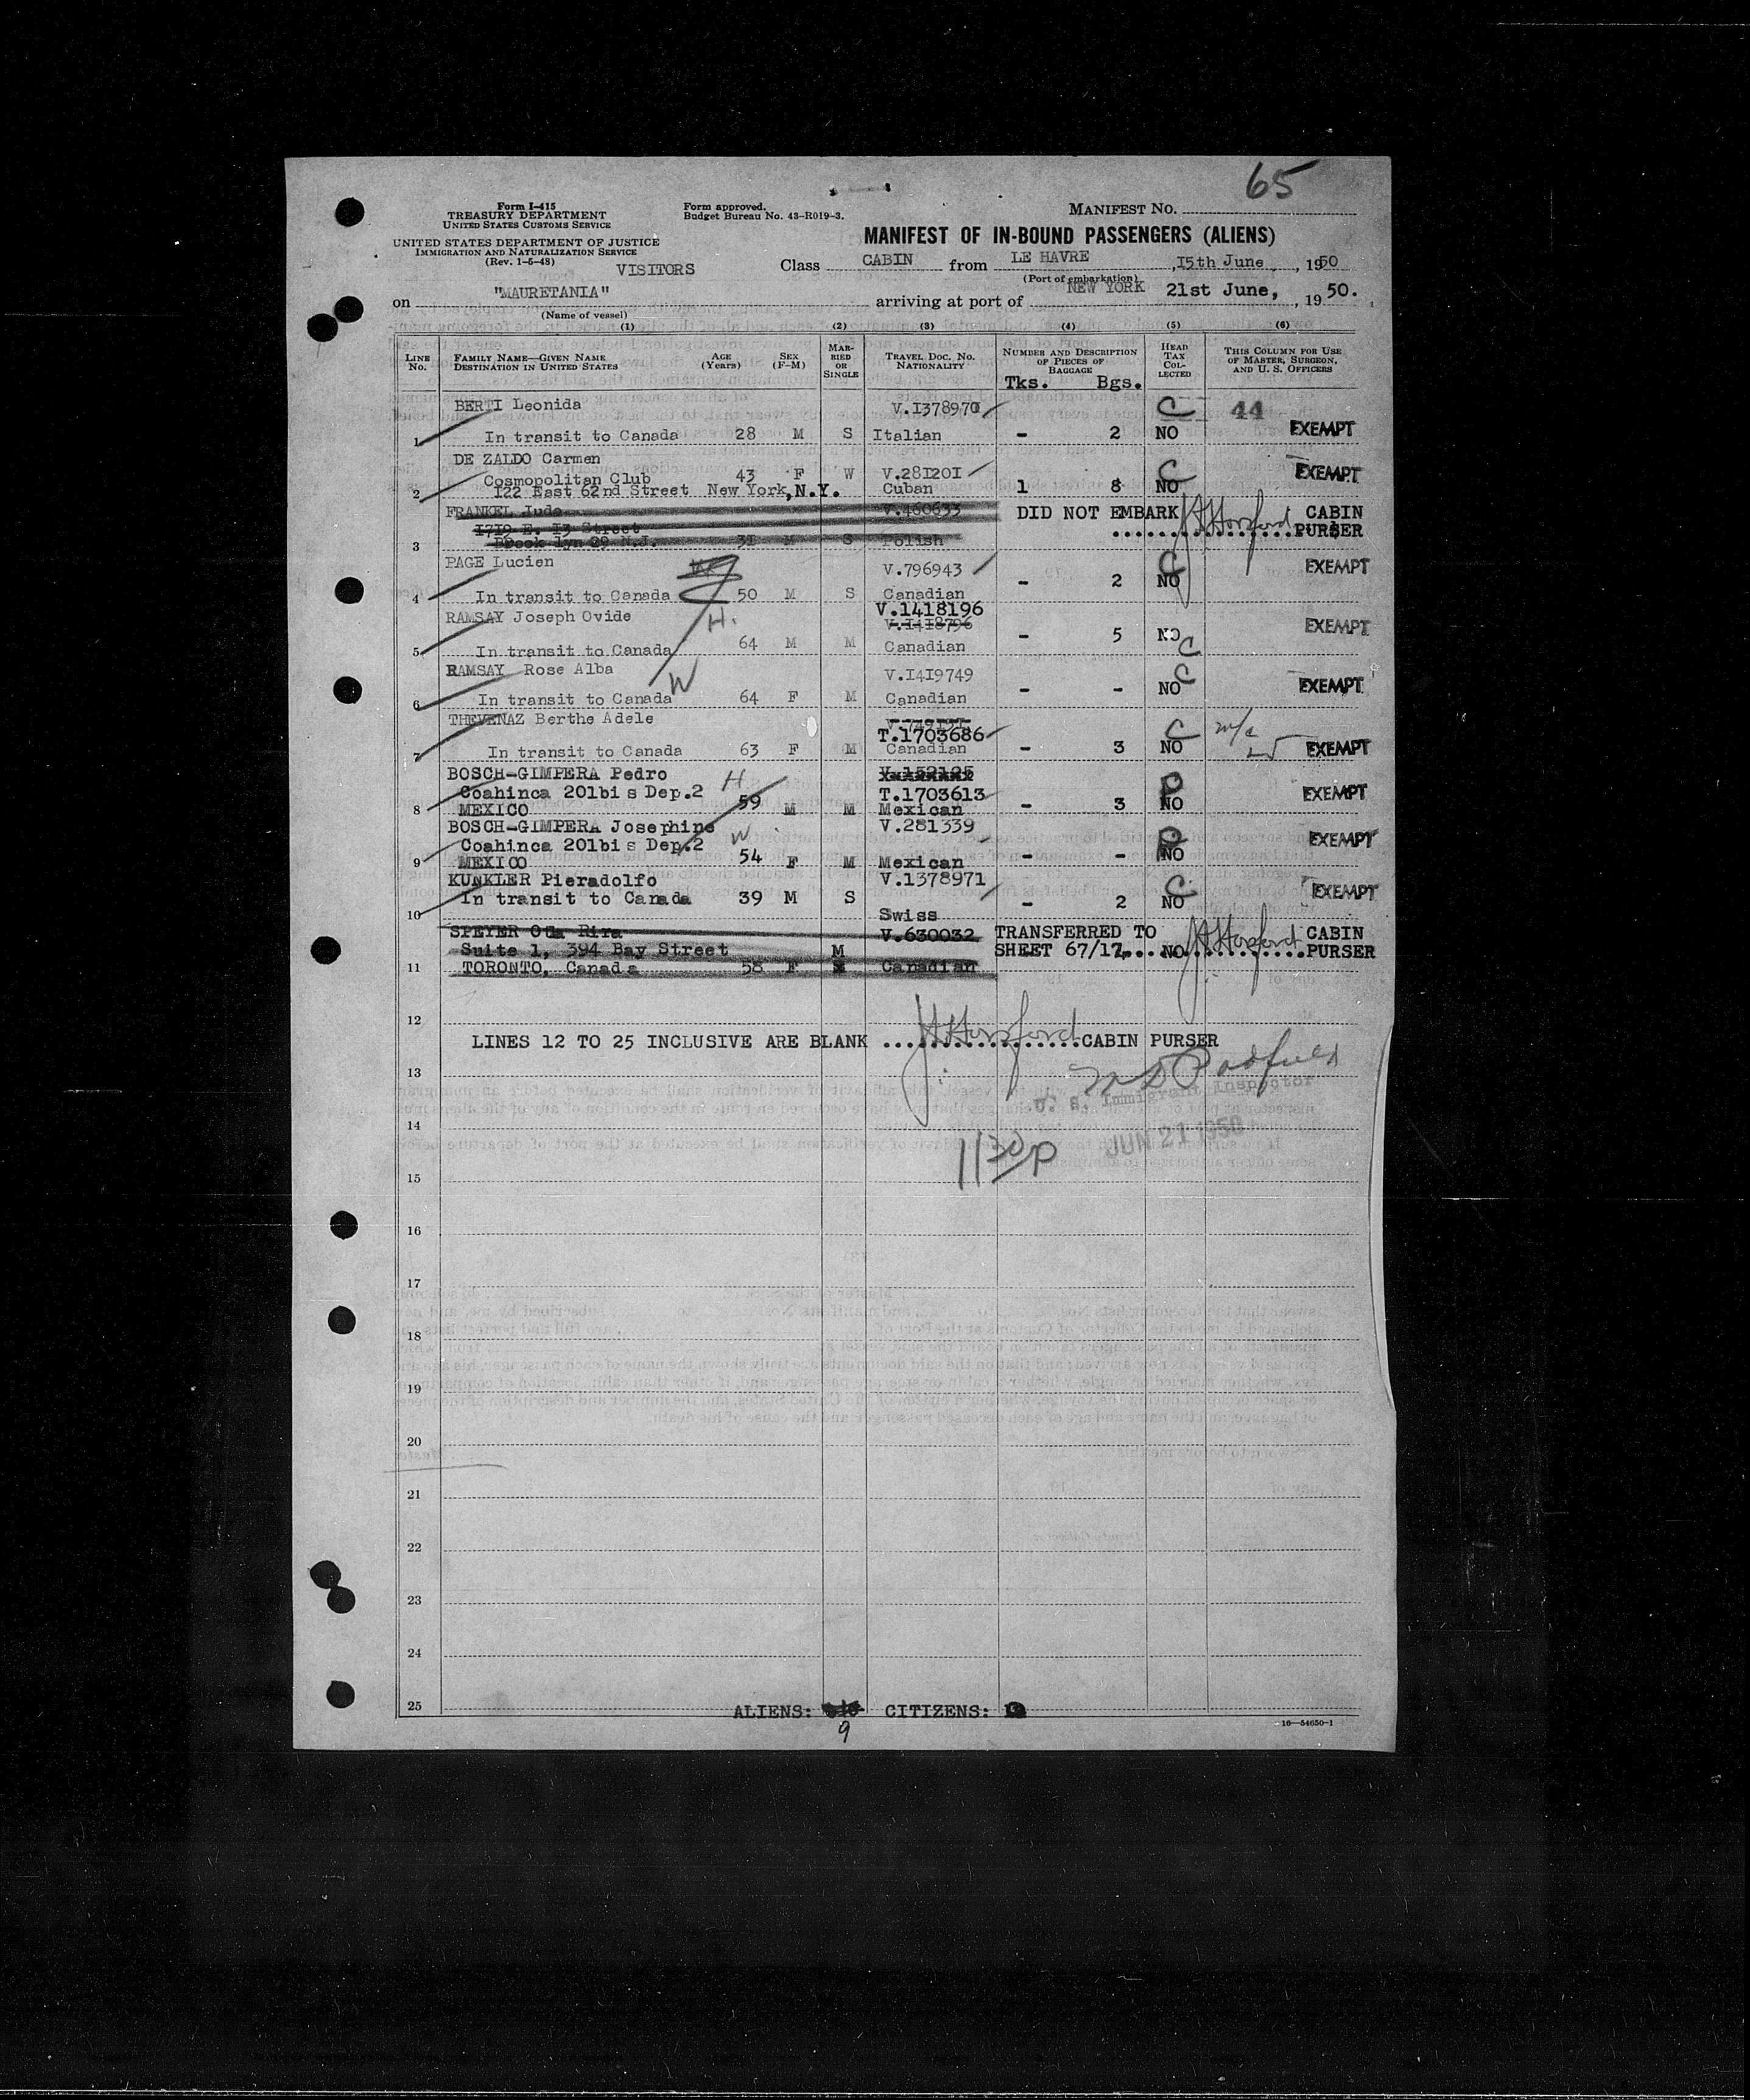 65
Form I-415
TREASURY DEPARTMENT
UNITED STATES CUSTOMS SERVICE
UNITED STATES DEPARTMENT OF JUSTICE
IMMIGRATION AND NATURALIZATION SERVICE
(Rev. 1-6-48)
Form approved.
Budget Bureau No. 43-R019-3.
MANIFEST NO.
MANIFEST OF IN-BOUND PASSENGERS (ALIENS)
VISITORS Class CABIN from LE HAVRE, 15th June, 1950
(Port of embarkation)
on "MAURETANIA" arriving at port of NEW YORK 21st June, 1950.
(Name of vessel)
(1) (2) (3) (4) (5) (6)
LINE NO. FAMILY NAME—GIVEN NAME DESTINATION IN UNITED STATES AGE (Years) SEX (F-M) MARRIED OR SINGLE TRAVEL DOC. NO. NATIONALITY NUMBER AND DESCRIPTION OF PIECES OF BAGGAGE HEAD TAX COLLECTED THIS COLUMN FOR USE OF MASTER, SURGEON, AND U. S. OFFICERS
Tks. Bgs.
BERTI Leonida V.1378970 C 44
1 In transit to Canada 28 M S Italian - 2 NO EXEMPT
DE ZALDO Carmen
Cosmopolitan Club 43 F W V.281201 C EXEMPT
2 122 East 62nd Street New York, N.Y. Cuban 1 8 NO
FRANKEL Jude V.460633 DID NOT EMBARK JHHorsford CABIN
1719 E. 13 Street PURSER
3 Brooklyn 29 N.J. 31 M S Polish
PAGE Lucien V.796943 C EXEMPT
4 In transit to Canada 50 M S Canadian - 2 NO
RAMSAY Joseph Ovide H. V.1418196
V.1418796 EXEMPT
5 In transit to Canada 64 M M Canadian - 5 NO C
RAMSAY Rose Alba V.1419749 C
6 In transit to Canada W 64 F M Canadian - - NO EXEMPT
THEVENAZ Berthe Adele
T.1703686 C
7 In transit to Canada 63 F M Canadian - 3 NO EXEMPT
BOSCH-GIMPERA Pedro H V.152125
Coahinca 201bis Dep.2 T.1703613 P EXEMPT
8 MEXICO 59 M M Mexican - 3 NO
BOSCH-GIMPERA Josephine W V.281339
Coahinca 201bis Dep.2 P EXEMPT
9 MEXICO 54 F M Mexican - - NO
KUNKLER Pieradolfo V.1378971 C EXEMPT
In transit to Canada 39 M S - 2 NO
10 Swiss
SPEYER Rira V.630032 TRANSFERRED TO JHHorsford CABIN
Suite 1, 394 Bay Street M SHEET 67/17. NO PURSER
11 TORONTO, Canada 58 F Canadian
12
LINES 12 TO 25 INCLUSIVE ARE BLANK JHHorsford CABIN PURSER
13
U. S. Immigrant Inspector
14 JUN 21 1950
1130p
15
16
17
18
19
20
21
22
23
24
25 ALIENS: CITIZENS:
9
16—54650-1